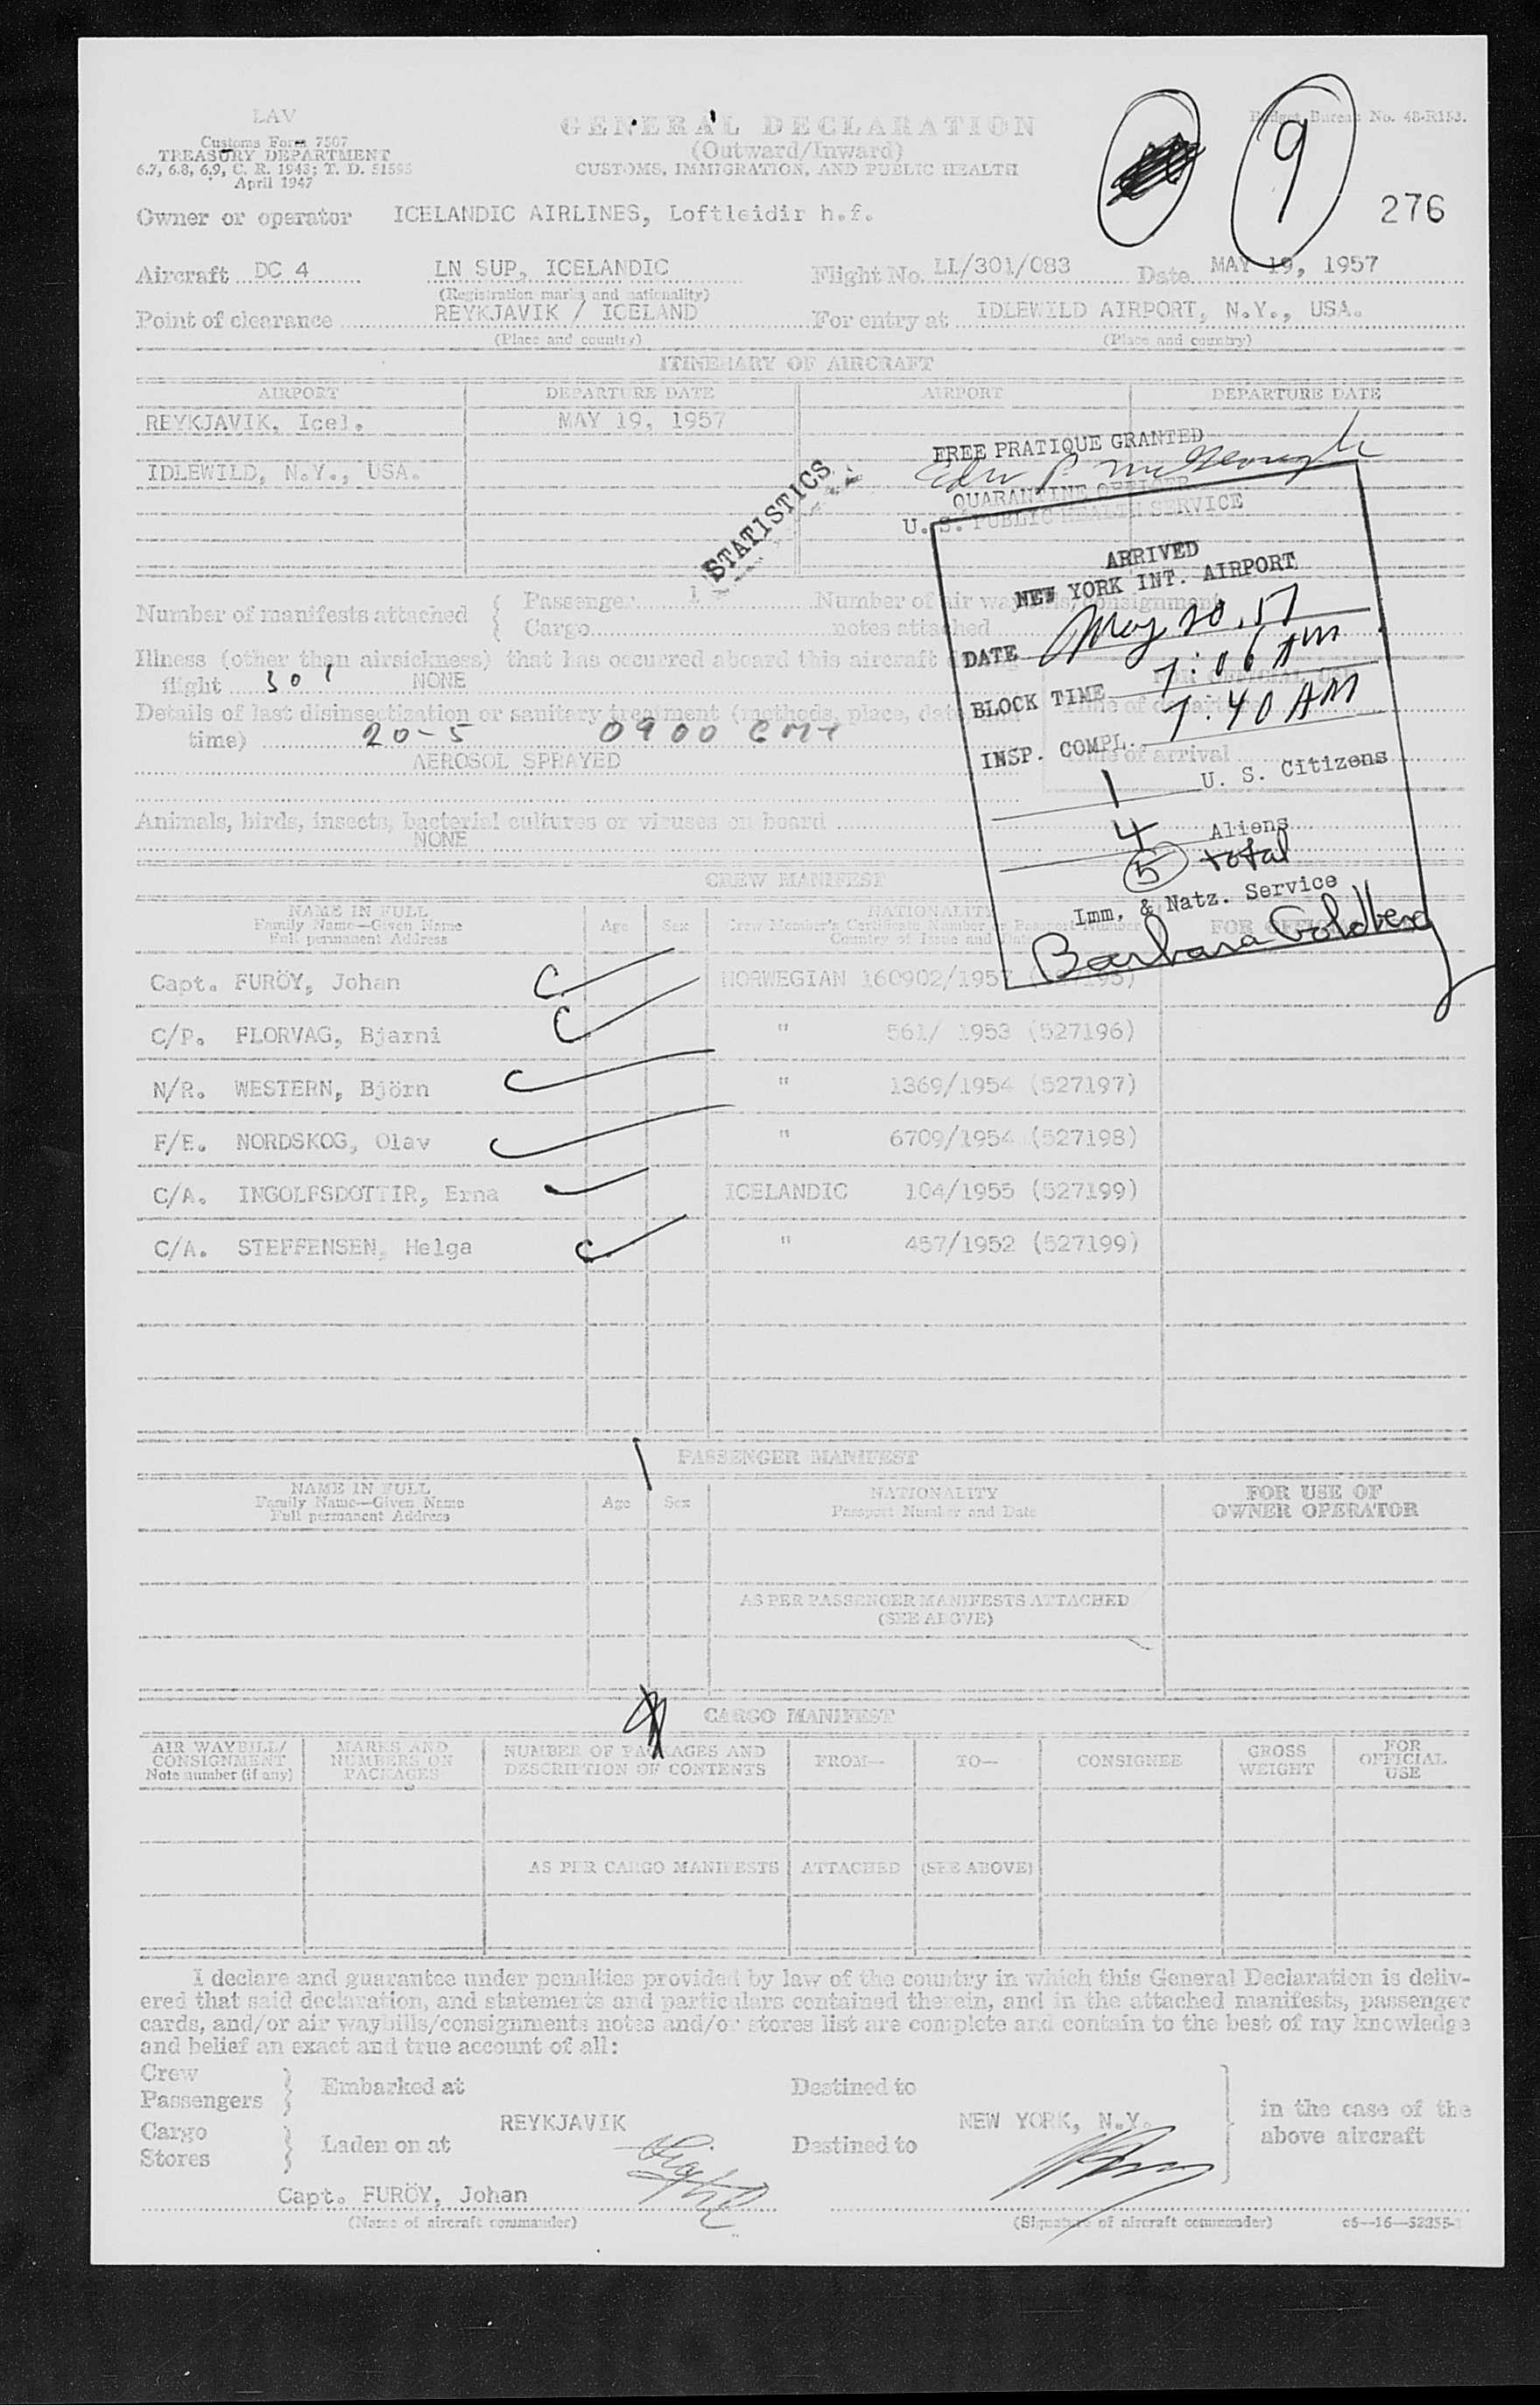 LAV
Customs Form 7507
TREASURY DEPARTMENT
6.7, 6.8, 6.9, C. R. 1943; T. D. 51595
April 1947
GENERAL DECLARATION
(Outward/Inward)
CUSTOMS, IMMIGRATION, AND PUBLIC HEALTH
Budget Bureau No. 48-R153.
9
276
Owner or operator ICELANDIC AIRLINES, Loftleidir h.f.
Aircraft DC 4 LN SUP, ICELANDIC Flight No. LL/301/083 Date MAY 19, 1957
(Registration marks and nationality)
Point of clearance REYKJAVIK / ICELAND For entry at IDLEWILD AIRPORT, N.Y., USA.
(Place and country) (Place and country)
ITINERARY OF AIRCRAFT
AIRPORT DEPARTURE DATE AIRPORT DEPARTURE DATE
REYKJAVIK, Icel. MAY 19, 1957
IDLEWILD, N.Y., USA.
STATISTICS
FREE PRATIQUE GRANTED
QUARANTINE OFFICER
U. S. PUBLIC HEALTH SERVICE
ARRIVED
NEW YORK INT. AIRPORT
DATE May 20, 57
BLOCK TIME 7:06 AM
INSP. COMPL. 7:40 AM
1 U. S. Citizens
4 Aliens
5 total
Imm. & Natz. Service
Barbara Goldberg
Number of manifests attached { Passenger 1 Number of air waybills/consignment
Cargo notes attached
Illness (other than airsickness) that has occurred aboard this aircraft
flight 301 NONE
FOR OFFICIAL USE
Details of last disinsectization or sanitary treatment (methods, place, date,
time) 20-5 0900 GMT
Time of departure
AEROSOL SPRAYED
Time of arrival
Animals, birds, insects, bacterial cultures or viruses on board
NONE
CREW MANIFEST
NAME IN FULL
Family Name—Given Name
Full permanent Address
Age Sex
NATIONALITY
Crew Member's Certificate Number or Passport Number
Country of Issue and Date
FOR OFFICIAL
Capt. FURÖY, Johan NORWEGIAN 160902/1957 (527195)
C/P. FLORVAG, Bjarni " 561/ 1953 (527196)
N/R. WESTERN, Björn " 1369/1954 (527197)
F/E. NORDSKOG, Olav " 6709/1954 (527198)
C/A. INGOLFSDOTTIR, Erna ICELANDIC 104/1955 (527199)
C/A. STEFFENSEN, Helga " 457/1952 (527199)
PASSENGER MANIFEST
NAME IN FULL
Family Name—Given Name
Full permanent Address
Age Sex
NATIONALITY
Passport Number and Date
FOR USE OF
OWNER OPERATOR
AS PER PASSENGER MANIFESTS ATTACHED
(SEE ABOVE)
CARGO MANIFEST
AIR WAYBILL/
CONSIGNMENT
Note number (if any)
MARKS AND
NUMBERS ON
PACKAGES
NUMBER OF PACKAGES AND
DESCRIPTION OF CONTENTS
FROM— TO— CONSIGNEE
GROSS
WEIGHT
FOR
OFFICIAL
USE
AS PER CARGO MANIFESTS ATTACHED (SEE ABOVE)
I declare and guarantee under penalties provided by law of the country in which this General Declaration is deliv-
ered that said declaration, and statements and particulars contained therein, and in the attached manifests, passenger
cards, and/or air waybills/consignments notes and/or stores list are complete and contain to the best of my knowledge
and belief an exact and true account of all:
Crew
Passengers } Embarked at Destined to
REYKJAVIK NEW YORK, N.Y.
Cargo
Stores } Laden on at Destined to
in the case of the
above aircraft
Capt. FURÖY, Johan
(Name of aircraft commander) (Signature of aircraft commander) c6—16—52355-1